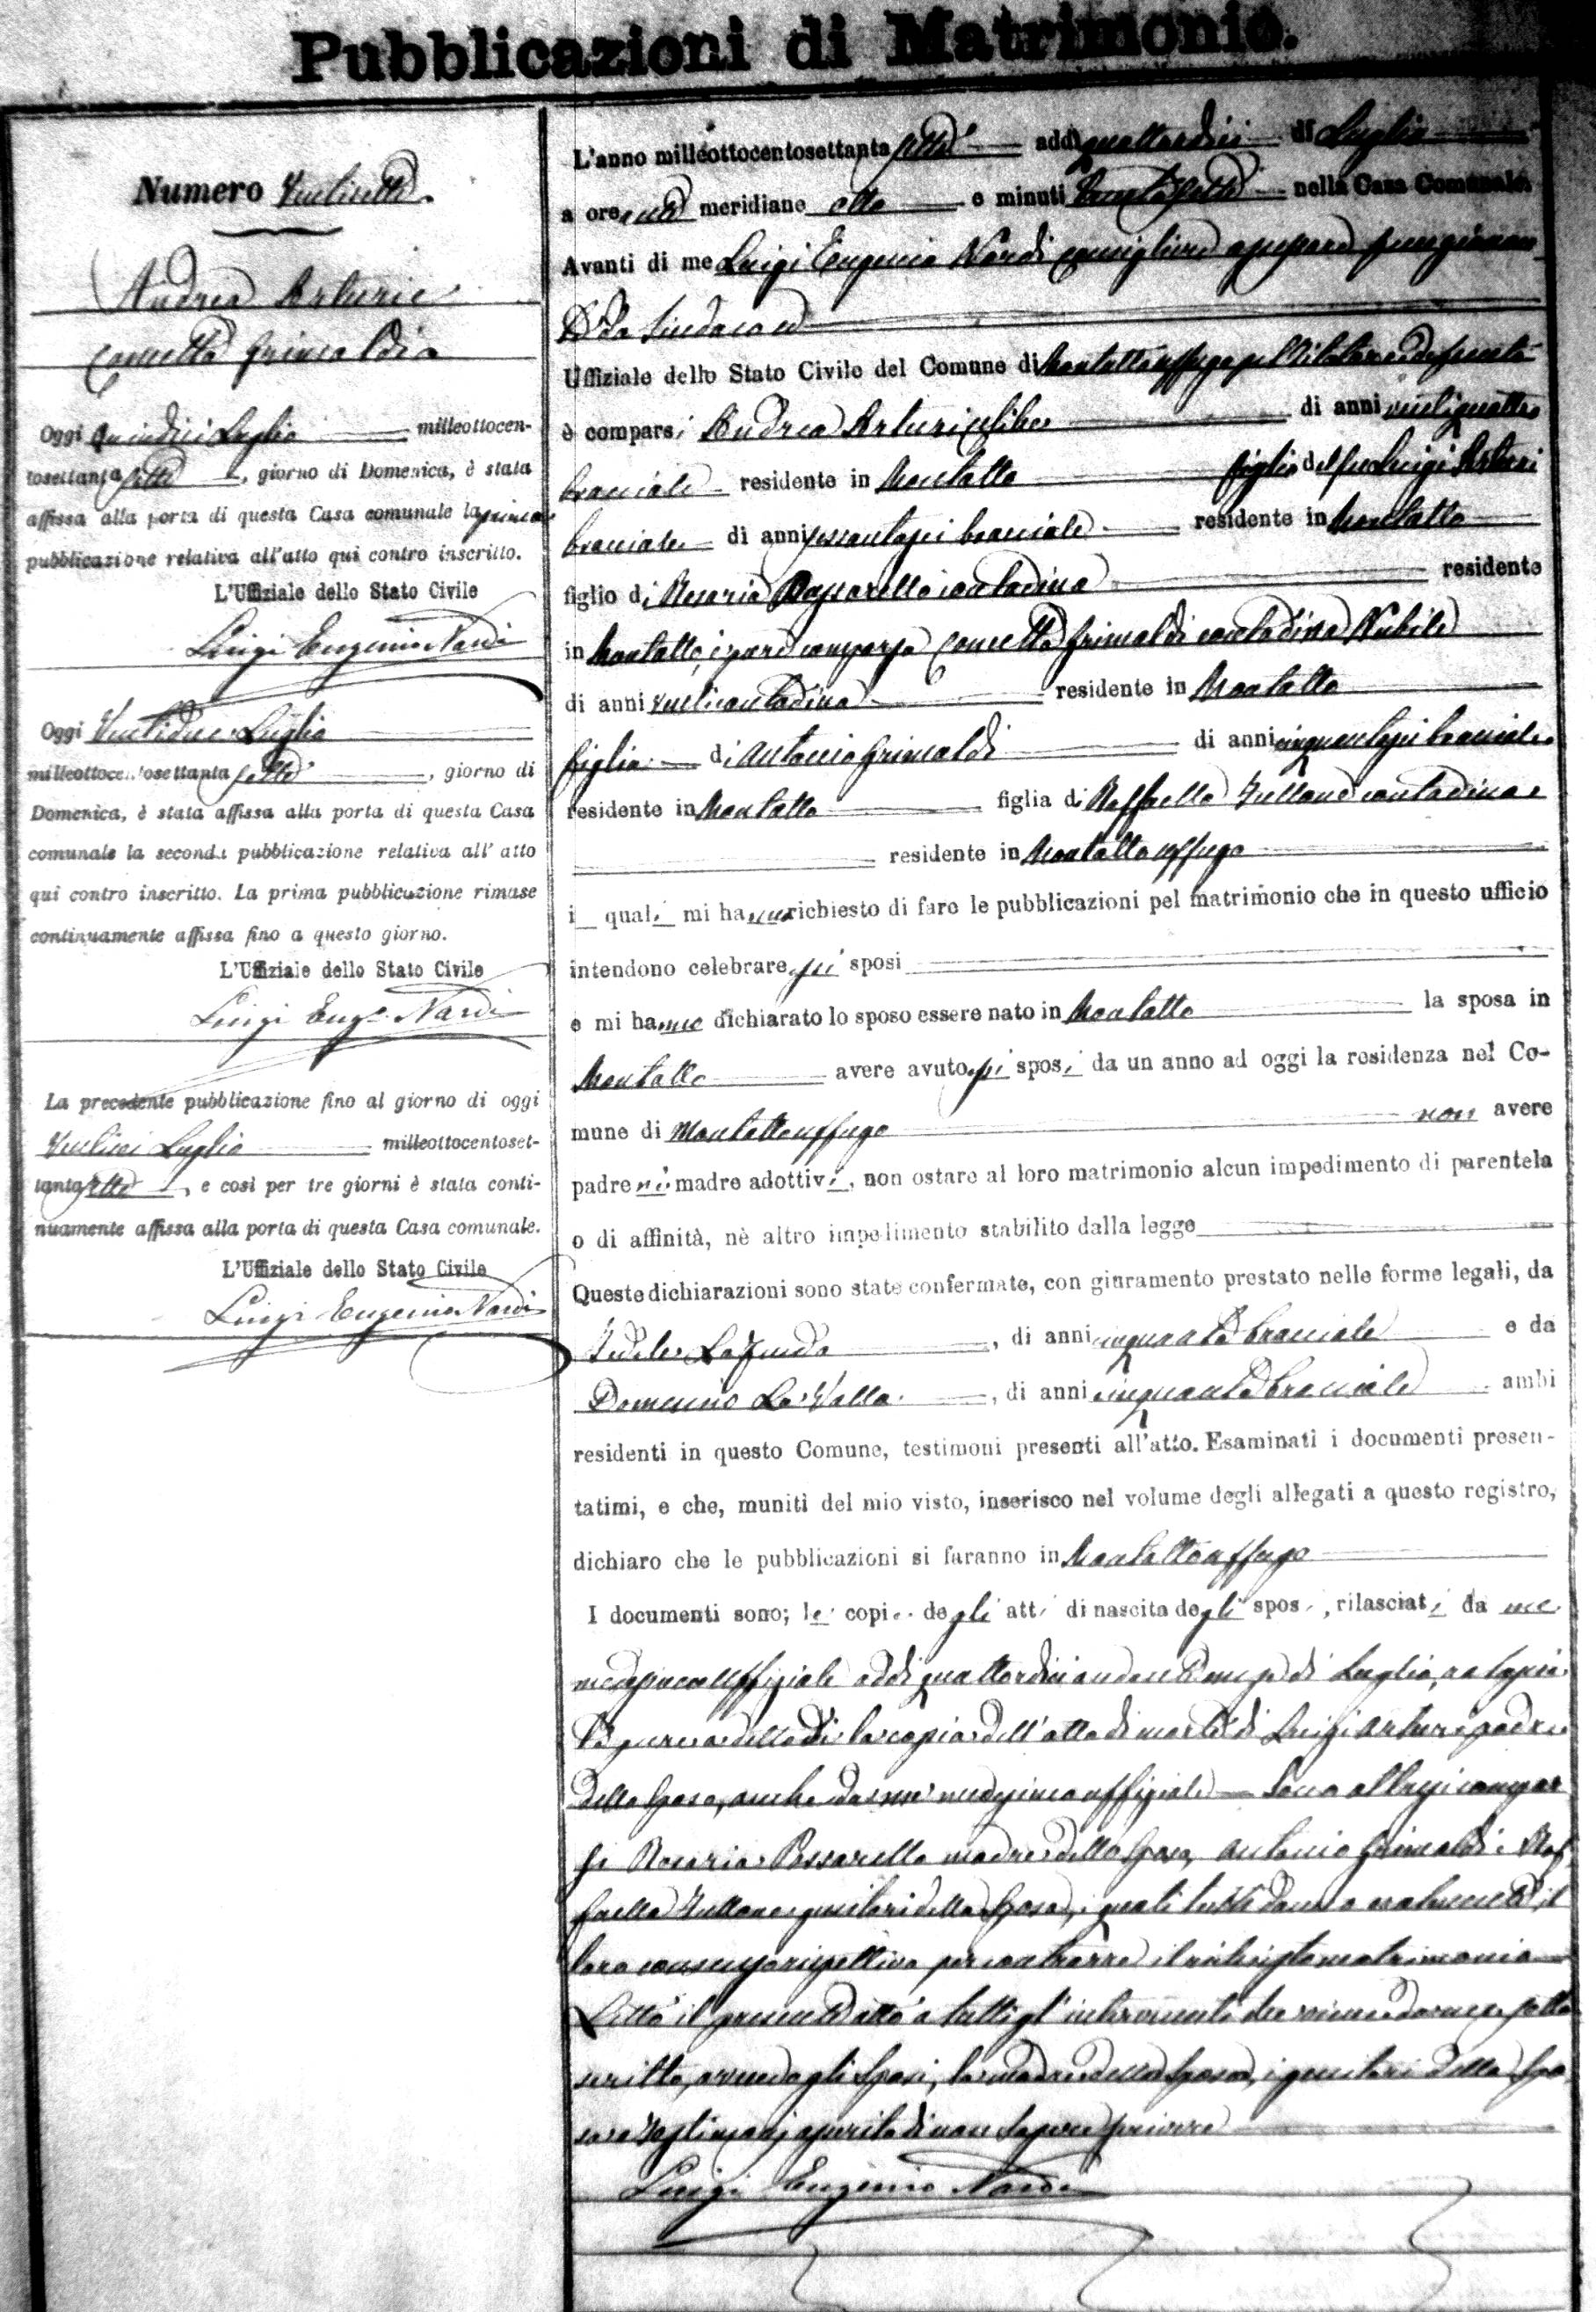 Pubblicazioni di Matrimonio.
Numero
Andrea Arturi e
Concetta Grimaldi
Oggi quindici Luglio milleottocen-
tosettanta sette, giorno di Domenica, è stata
affissa alla porta di questa Casa comunale la prima
pubblicazione relativa all'atto qui contro inscritto.
L'Uffiziale dello Stato Civile
Luigi Eugenio Nardi
Oggi Ventidue Luglio
milleottocentosettanta sette, giorno di
Domenica, è stata affissa alla porta di questa Casa
comunale la seconda pubblicazione relativa all'atto
qui contro inscritto. La prima pubblicazione rimase
continuamente affissa fino a questo giorno.
L'Uffiziale dello Stato Civile
Luigi Eug. Nardi
La precedente pubblicazione fino al giorno di oggi
Luglio milleottocentoset-
tanta sette, e così per tre giorni è stata conti-
nuamente affissa alla porta di questa Casa comunale.
L'Uffiziale dello Stato Civile
Luigi Eugenio Nardi
L'anno milleottocentosettanta sette addì quattordici di Luglio
a ore meridiane otto e minuti nella Casa Comunale
Avanti di me Luigi Eugenio Nardi consigliere
da Sindaco ed
Uffiziale dello Stato Civile del Comune di Montalto Uffugo pel titolare
è comparsi Andrea Arturi celibe di anni ventiquattro
bracciale residente in Montalto figlio del fu Luigi Arturi
bracciale di anni sessantasei bracciale residente in Montalto
figlio di Rosaria Passarello contadina residente
in Montalto, è pure comparsa Concetta Grimaldi contadina Nubile
di anni venti contadina residente in Montalto
figlia di Antonio Grimaldi di anni cinquantasei bracciale
residente in Montalto figlia di Raffaella Tullane contadina
residente in Montalto uffugo
i quali mi hanno richiesto di fare le pubblicazioni pel matrimonio che in questo ufficio
intendono celebrare sposi
e mi hanno dichiarato lo sposo essere nato in Montalto la sposa in
Montalto avere avuto sposi da un anno ad oggi la residenza nel Co-
mune di Montalto uffugo non avere
padre nè madre adottivi, non ostare al loro matrimonio alcun impedimento di parentela
o di affinità, nè altro impedimento stabilito dalla legge
Queste dichiarazioni sono state confermate, con giuramento prestato nelle forme legali, da
Fedele, di anni cinquanta bracciale e da
Domenico La Valla, di anni cinquanta bracciale ambi
residenti in questo Comune, testimoni presenti all'atto. Esaminati i documenti presen-
tatimi, e che, muniti del mio visto, inserisco nel volume degli allegati a questo registro,
dichiaro che le pubblicazioni si faranno in Montalto uffugo
I documenti sono; le copie degli atti di nascita degli sposi, rilasciati da me
medesimo Uffiziale addì quattordici andante mese di Luglio,
la copia dell'atto di morte di Luigi Arturi padre
dello Sposo, anche da me medesimo uffiziale Sono altresì compar
si Rosaria Passarello madre dello Sposo, Antonio Grimaldi e Raf
faella Tullane genitori della Sposa, i quali tutti danno il
loro consenso rispettivo per contrarre il richiesto matrimonio
Letto il presente atto a tutti gl'intervenuti da me sotto
scritto, gli Sposi, la madre dello Sposo, i genitori della Spo
sa di non sapere scrivere
Luigi Eugenio Nardi